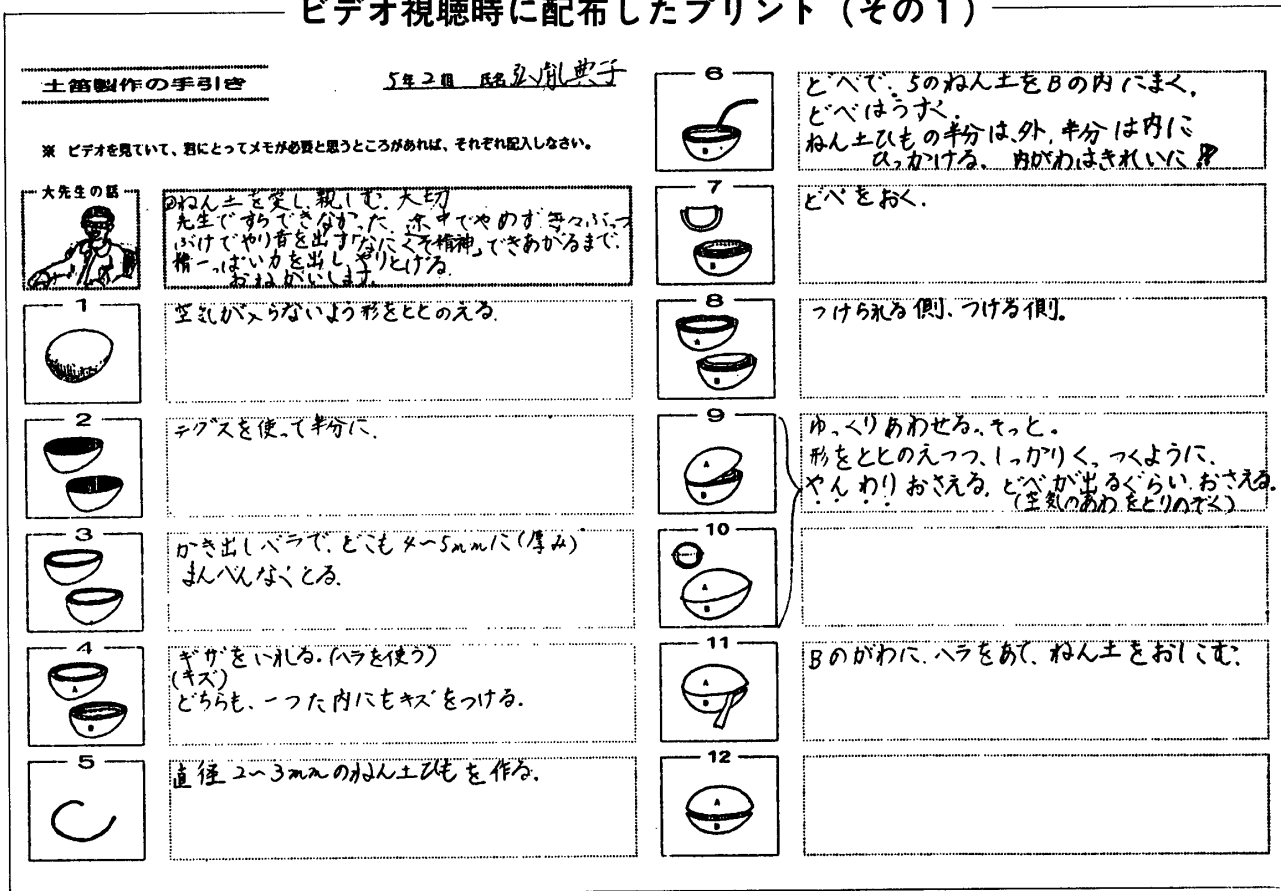 ビデオ視聴時に配布したプリント（その1）
土笛製作の手引き
5年2組 氏名 典子
※ ビデオを見ていて、君にとってメモが必要と思うところがあれば、それぞれ記入しなさい。
大先生の話
ねん土を愛し、親しむ、大切
先生ですらできなかった。途中でやめず、等々ぶっつ
ぶけでやり音を出す「なにくそ精神」できあがるまで、
精一っぱい力を出し、やりとげる。
おねがいします。
1
空気が入らないよう形をととのえる。
2
テグスを使って半分に、
3
かき出しベラで、どこも4〜5mmに(厚み)
まんべんなくとる。
4
A
B
ギザをいれる。(ヘラを使う)
(キズ)
どちらも、一つた内にもキズをつける。
5
直径2〜3mmのねん土ひもを作る。
6
どべで、5のねん土をBの内にまく。
どべはうすく。
ねん土ひもの半分は、外、半分は内に
ひっかける。内がわはきれいに
7
B
どべをおく。
8
A
B
つけられる側、つける側。
9
A
B
ゆっくりあわせる。そっと。
形をととのえつつ、しっかりくっつくように、
やんわりおさえる。どべが出るぐらい、おさえる。
(空気のあわをとりのぞく)
10
A
B
11
A
B
Bのがわに、ヘラをあて、ねん土をおしこむ。
12
A
B